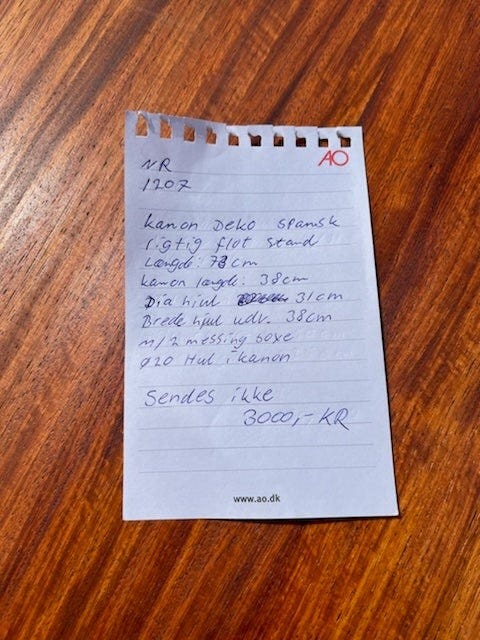 AO
NR
1207
kanon Deko spansk
rigtig flot stand
Længde: 78cm
kanon længde: 38cm
Dia hjul 31cm
Brede hjul udv. 38cm
m/2 messing boxe
ø20 Hul i kanon
Sendes ikke
3000,- KR
www.ao.dk